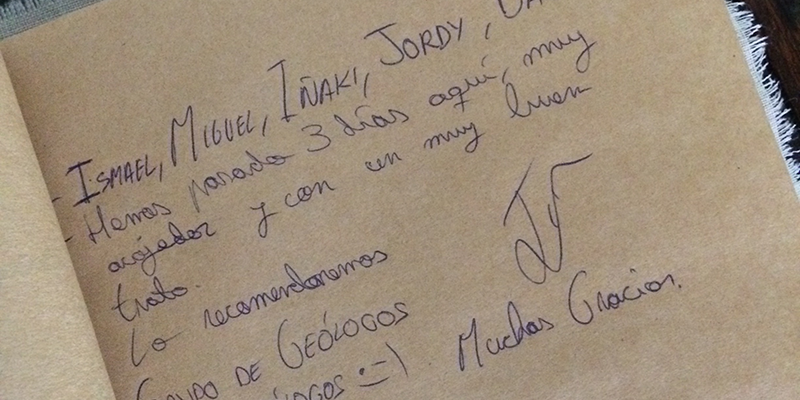 - ISMAEL, MIGUEL, IÑAKI, JORDY,
- Hemos pasado 3 días aquí, muy
acojedor y con un muy buen
trato.
Lo recomendaremos
GRUPO DE GEÓLOGOS
:=)
Muchas Gracias.